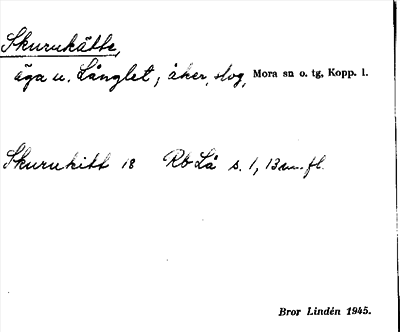 Skurukätte,
äga u. Långlet, åker, slog, Mora sn o. tg, Kopp. l.
Skurukitt 18 Rb Lå s. 1, 13 m. fl.
Bror Lindén 1945.